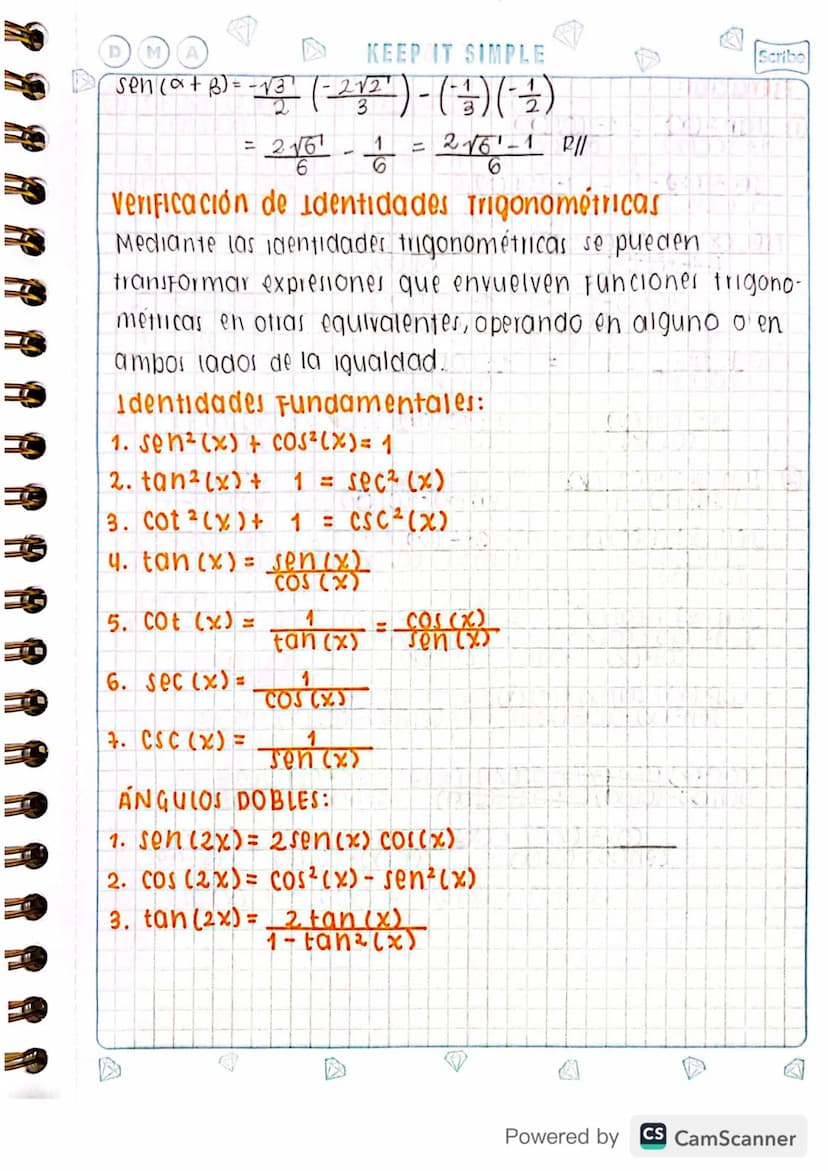 D M A
KEEP IT SIMPLE
Scribe
sen(α + β) = -√3/2 (-2√2/3) - (-1/3)(-1/2)
= 2√6/6 - 1/6 = 2√6 - 1/6 R//
Verificación de Identidades Trigonométricas
Mediante las identidades trigonométricas se pueden
transformar expresiones que envuelven funciones trigono-
métricas en otras equivalentes, operando en alguno o en
ambos lados de la igualdad.
Identidades Fundamentales:
1. sen²(x) + cos²(x) = 1
2. tan²(x) + 1 = sec²(x)
3. cot²(x) + 1 = csc²(x)
4. tan(x) = sen(x)/cos(x)
5. cot(x) = 1/tan(x) = cos(x)/sen(x)
6. sec(x) = 1/cos(x)
7. csc(x) = 1/sen(x)
ÁNGULOS DOBLES:
1. sen(2x) = 2sen(x) cos(x)
2. cos(2x) = cos²(x) - sen²(x)
3. tan(2x) = 2tan(x)/1 - tan²(x)
Powered by CS CamScanner